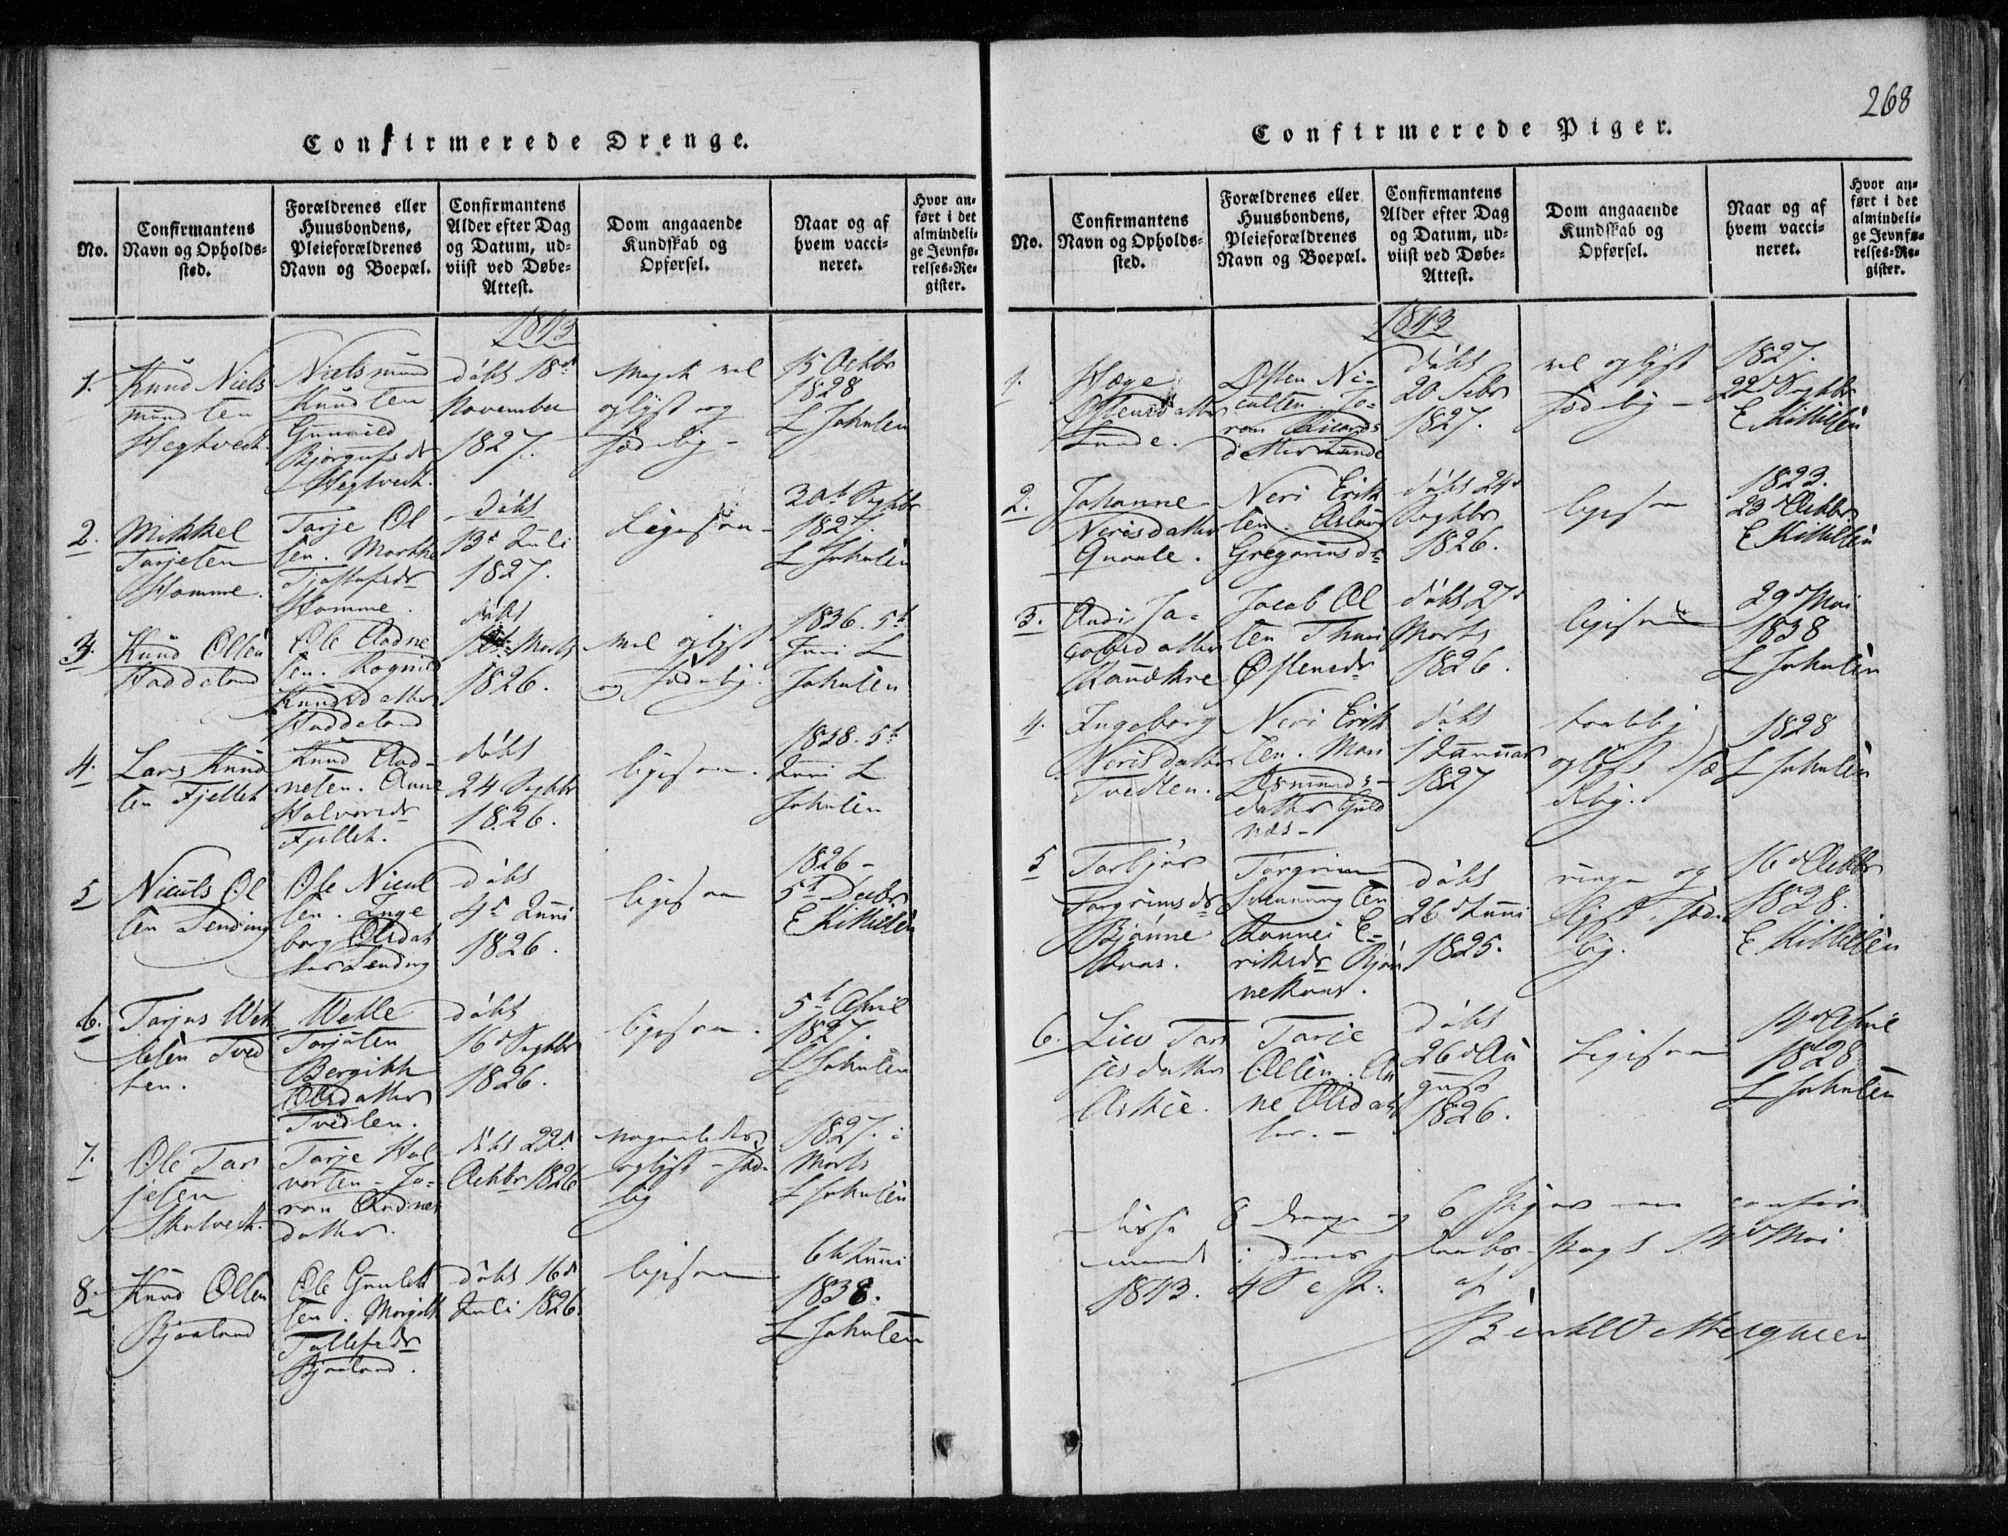 268
Confirmerede Drenge.
No.
Confirmantens
Navn og Opholds-
sted.
Forældrenes eller
Huusbondens,
Pleieforældrenes
Navn og Boepæl.
Confirmantens
Alder efter Dag
og Datum, ud-
viist ved Døbe-
Attest.
Dom angaaende
Kundskab og
Opførsel.
Naar og af
hvem vacci-
neret.
Hvor an-
ført i det
almindeli-
ge Jevnfø-
relses-Re-
gister.
1843
1.
Knud Niels
mundsen
Nielsmund
Knudsen
Gunnild
Bjørgufsdr
døbt 18d
November
1827.
Meget vel
oplyst og
sædelig -
15 Octbr
1828
L Johnsen
2.
Mikkel
Tarjesen
Homme.
Tarje Ol
sen.
Homme.
Døbt
13d Juli
1827.
Ligesaa -
1827.
L Johnsen
3.
Knud Olsen
Haddeland
Ole Aadne
sen. Ragnild
Knudsdatter
Haddeland
døbt
Marts
1826.
vel oplyst
og sædelig.
1836. 5t
Juni L
Johnsen
4.
Lars Knud
sen Fjellet
Knud Aad-
nesen. Anne
Halvorsdr
Fjellet.
døbt
24 Septbr
1826.
ligesaa.
1838. 5t
Juni L
Johnsen
5
Niculs Ol
sen Sending
Ole Nicul
sen. Inge
borg Olsdat
ter Sending
døbt
4d Juni
1826.
ligesaa
1826 -
5t Decbr
E Kittilsen
6.
Tarjus Wet
lesen Tved
ten.
Wetle
Tarjusen
Bergitth
Olsdatter
Tvedten.
døbt
16d Septbr
1826.
ligesaa.
5t April
1827.
L Johnsen
7.
Ole Tar
jesen
Tarje Hal
vorsen - Jo-
ran Aadnes
datter.
døbt 22d
Octbr 1826
nogenledes
oplyst - sæde
lig
1827. i
Marts
L Johnsen
8.
Knud Olsen
Bjaaland
Ole Gunleik
sen. Margith
Tallefsdr
Bjaaland.
døbt 16d
Juli 1826.
ligesaa
6t Juni
1838.
L Johnsen
Confirmerede Piger.
No.
Confirmantens
Navn og Opholds-
sted.
Forældrenes eller
Huusbondens,
Pleieforældrenes
Navn og Boepæl.
Confirmantens
Alder efter Dag
og Datum, ud-
viist ved Døbe-
Attest.
Dom angaaende
Kundskab og
Opførsel.
Naar og af
hvem vacci-
neret.
Hvor an-
ført i det
almindeli-
ge Jevnfø-
relses-Re-
gister.
1843
1.
Hæge
Østensdatter
Lunde.
Østen Ni-
culsen. Jo-
ran
datter Lunde
døbt
20
1827.
vel oplyst
sædelig -
1827.
22d Septbr
E Kittilsen
2.
Johanne
Nerisdatter
Quaale.
Neri Erik
sen. Aslaug
Gregoriusdr
døbt 24d
Septbr
1826.
ligesaa
1823.
23d Octbr
E Kittilsen
3.
Jacobsdatter
Jacob Ol
sen
Østensdr
døbt 27d
Marts
1826.
ligesaa
29d Mai
1838
L Johnsen
4.
Ingeborg
Nerisdatter
Tvedten.
Neri Erik
sen. Mari
Asmunds-
datter Guld
næs -
døbt
1 Januar
1827
taalelig
oplyst sæ
delig.
1828
L Johnsen
5
Torbjør
Torgrimsdr
Bjønne
Torgrim
Svennungsen
Rannei E-
riksdr Bjøn
døbt
26d Juni
1825.
ringe og
lyst. sæde
lig.
16d Octbr
1828.
E Kittilsen
6.
Liv Tar
jesdatter
Askje.
Tarje
Olsen. An
ne Olsdat
ter. -
døbt
26d Au
gust
1826.
Ligesaa
14d April
1828
L Johnsen
disse 8 Drenge og 6 Piger ere confir
meret i 14d Mai
1843. af